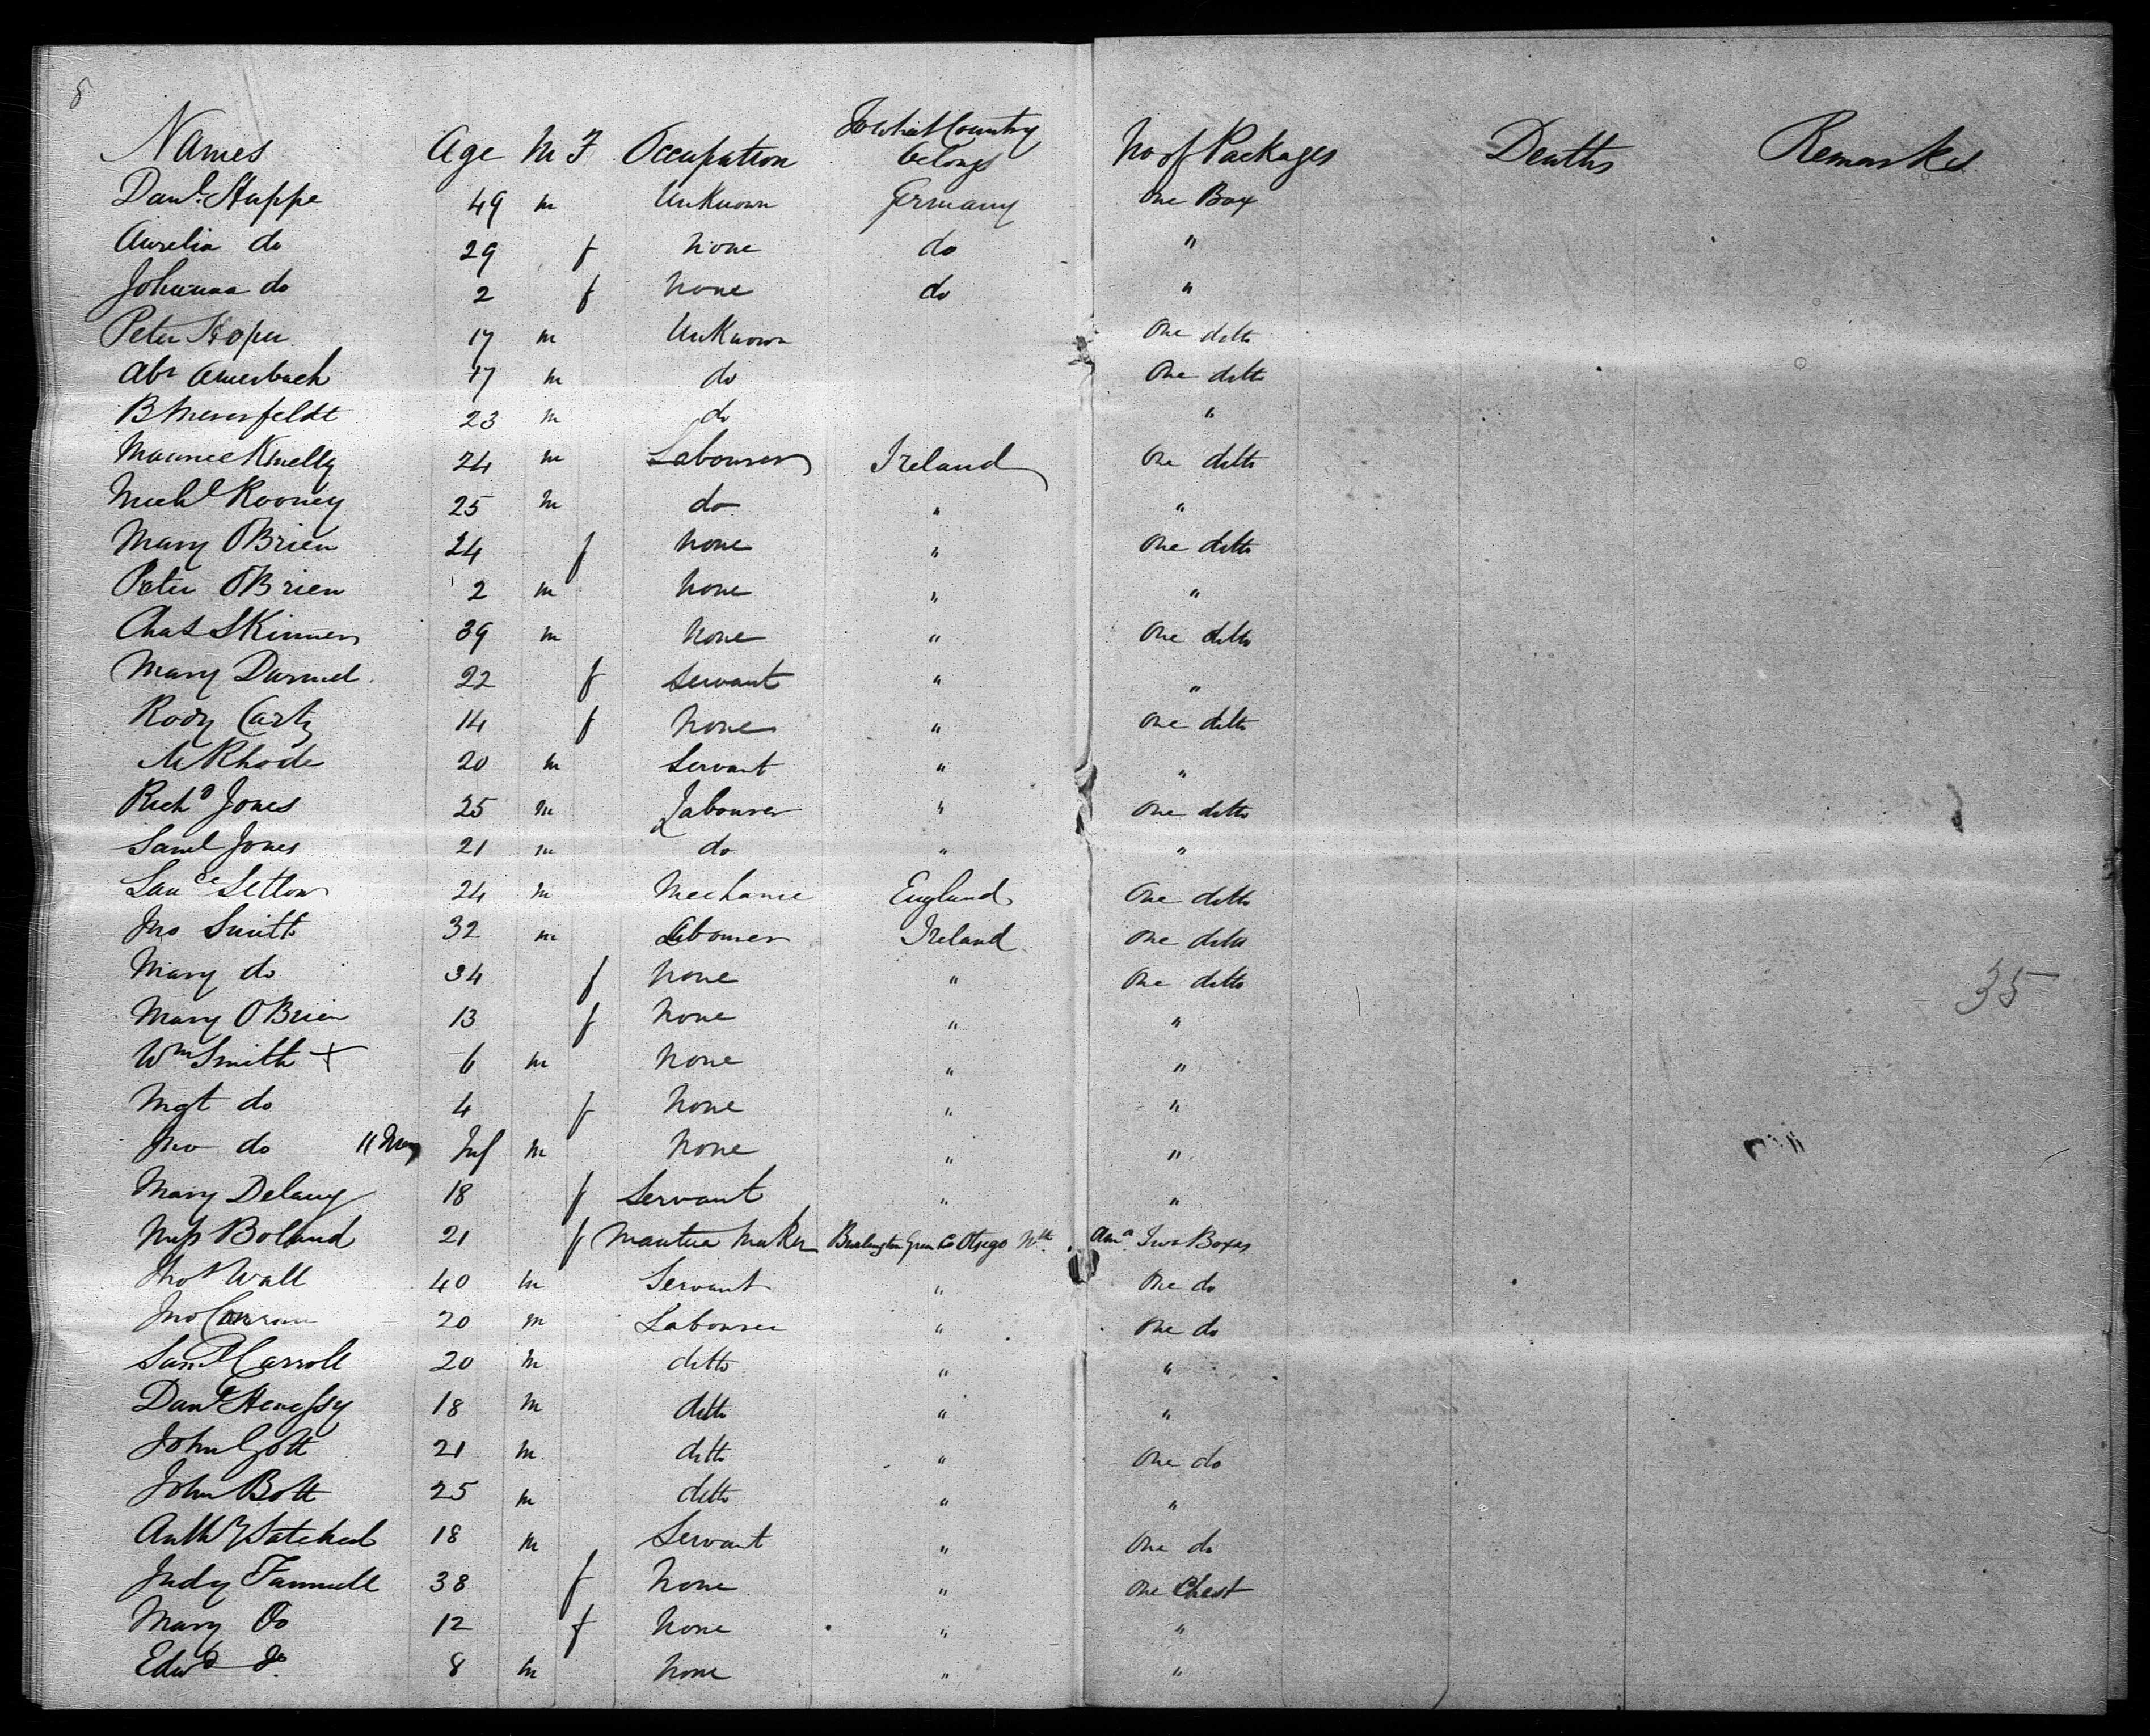 8
Names Age M F Occupation To What Country belongs No of Packages Deaths Remarks
Danl. Huppe 49 m Unknown Germany One Box
Aurelia do 29 f None do "
Johanna do 2 f None do "
Peter Hoper 17 m Unknown One ditto
Abr Auerbach 17 m do One ditto
B Meversfeldt 23 m do "
Maurice Kinelly 24 m Labourer Ireland One ditto
Michl Rooney 25 m do " "
Mary O'Brien 24 f None " One ditto
Peter O'Brien 2 m None " "
Chas Skinner 39 m None " One ditto
Mary 22 f Servant " "
Rody Carty 14 f None " One ditto
M Rhode 20 m Servant " "
Richd Jones 25 m Labourer " One ditto
Saml Jones 21 m do " "
Lauce Setton 24 m Mechanic England One ditto
Jno Smith 32 m Labourer Ireland One ditto
Mary do 34 f None " One ditto
35
Mary O'Brien 13 f None " "
Wm Smith + 6 m None " "
Mgt do 4 f None " "
Jno do 11 Inf m None " "
Mary Delany 18 f Servant " "
Miss Boland 21 f Mantua Maker Burlington Green Co Otsego Nth Ama. Two Boxes
Thos Wall 40 m Servant " One do
Jno 20 m Labourer " One do
Saml Carroll 20 m ditto " "
Danl Henessy 18 m ditto " "
John Gott 21 m ditto " One do
John Bott 25 m ditto " "
Anthy Satchell 18 m Servant " One do
Judy Fannell 38 f None " One Chest
Mary Do 12 f None " "
Edwd Do 8 m None " "